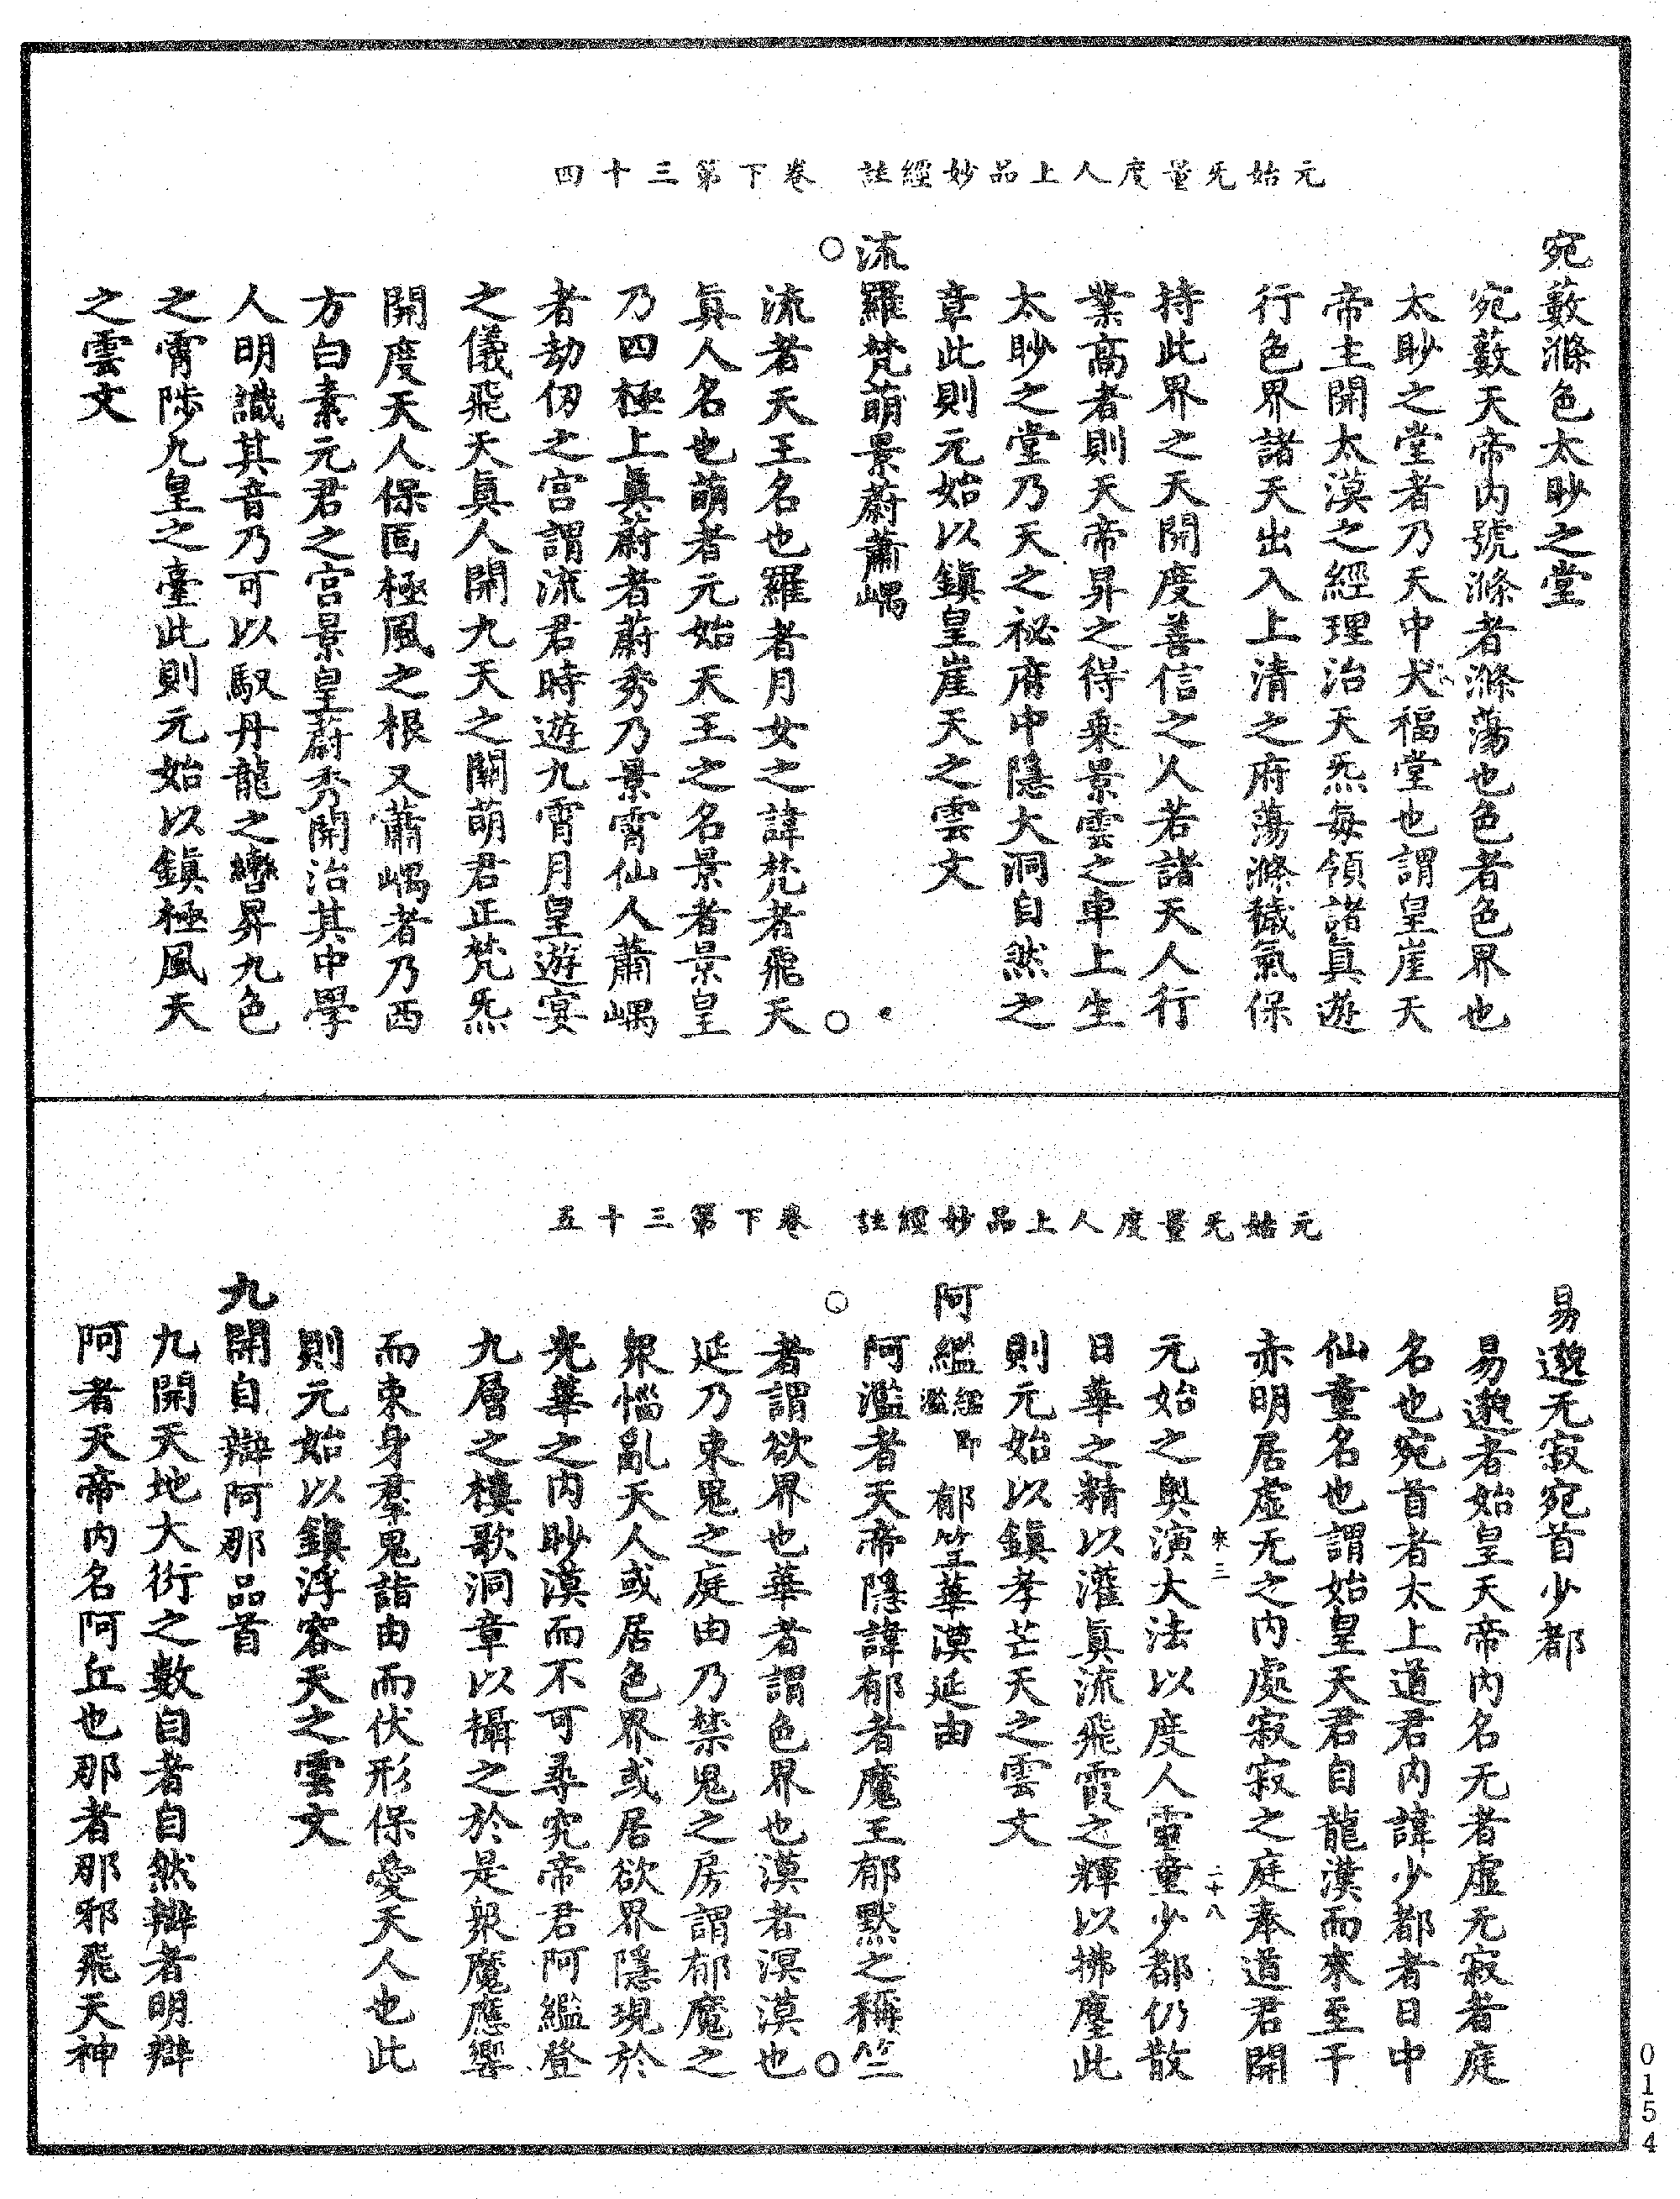 元始无量度人上品妙經註　卷下第三十四
宛藪滌色太眇之堂
宛藪天帝内號滌者滌蕩也色者色界也
太眇之堂者乃天中大福堂也謂皇崖天
帝主開太漠之經理治天炁每領諸真遊
行色界諸天出入上清之府蕩滌穢氣保
持此界之天開度善信之人若諸天人行
業高者則天帝昇之得乘景雲之車上生
太眇之堂乃天之祕府中隱大洞自然之
章此則元始以鎮皇崖天之雲文
流羅梵萌景蔚蕭嵎
流者天王名也羅者月女之諱梵者飛天
真人名也萌者元始天王之名景者景皇
乃四極上真蔚者蔚秀乃景霄仙人蕭嵎
者劫仞之宮謂流君時遊九霄月皇遊宴
之儀飛天真人開九天之關萌君正梵炁
開度天人保固極風之根又蕭嵎者乃西
方白素元君之宮景皇蔚秀開治其中學
人明識其音乃可以馭丹龍之轡昇九色
之霄陟九皇之臺此則元始以鎮極風天
之雲文
元始无量度人上品妙經註　卷下第三十五
易邈无寂宛首少都
易邈者始皇天帝内名无者虛无寂者庭
名也宛首者太上道君内諱少都者日中
仙童名也謂始皇天君自龍漢而來至于
赤明居虛无之内處寂寂之庭奉道君開
來三　二十八
元始之奧演大法以度人靈童少都仍散
日華之精以灌真流飛霞之輝以拂塵此
則元始以鎮孝芒天之雲文
阿繿繿即濫郁竺華漠延由
阿濫者天帝隱諱郁者魔王郁默之稱竺
者謂欲界也華者謂色界也漠者溟漠也
延乃束鬼之庭由乃禁鬼之房謂郁魔之
衆惱亂天人或居色界或居欲界隱現於
光華之内眇漠而不可尋究帝君阿繿登
九層之樓歌洞章以攝之於是衆魔應響
而束身羣鬼詣由而伏形保愛天人也此
則元始以鎮浮容天之雲文
九開自辯阿那品首
九開天地大衍之數自者自然辯者明辯
阿者天帝内名阿丘也那者那邪飛天神
0154